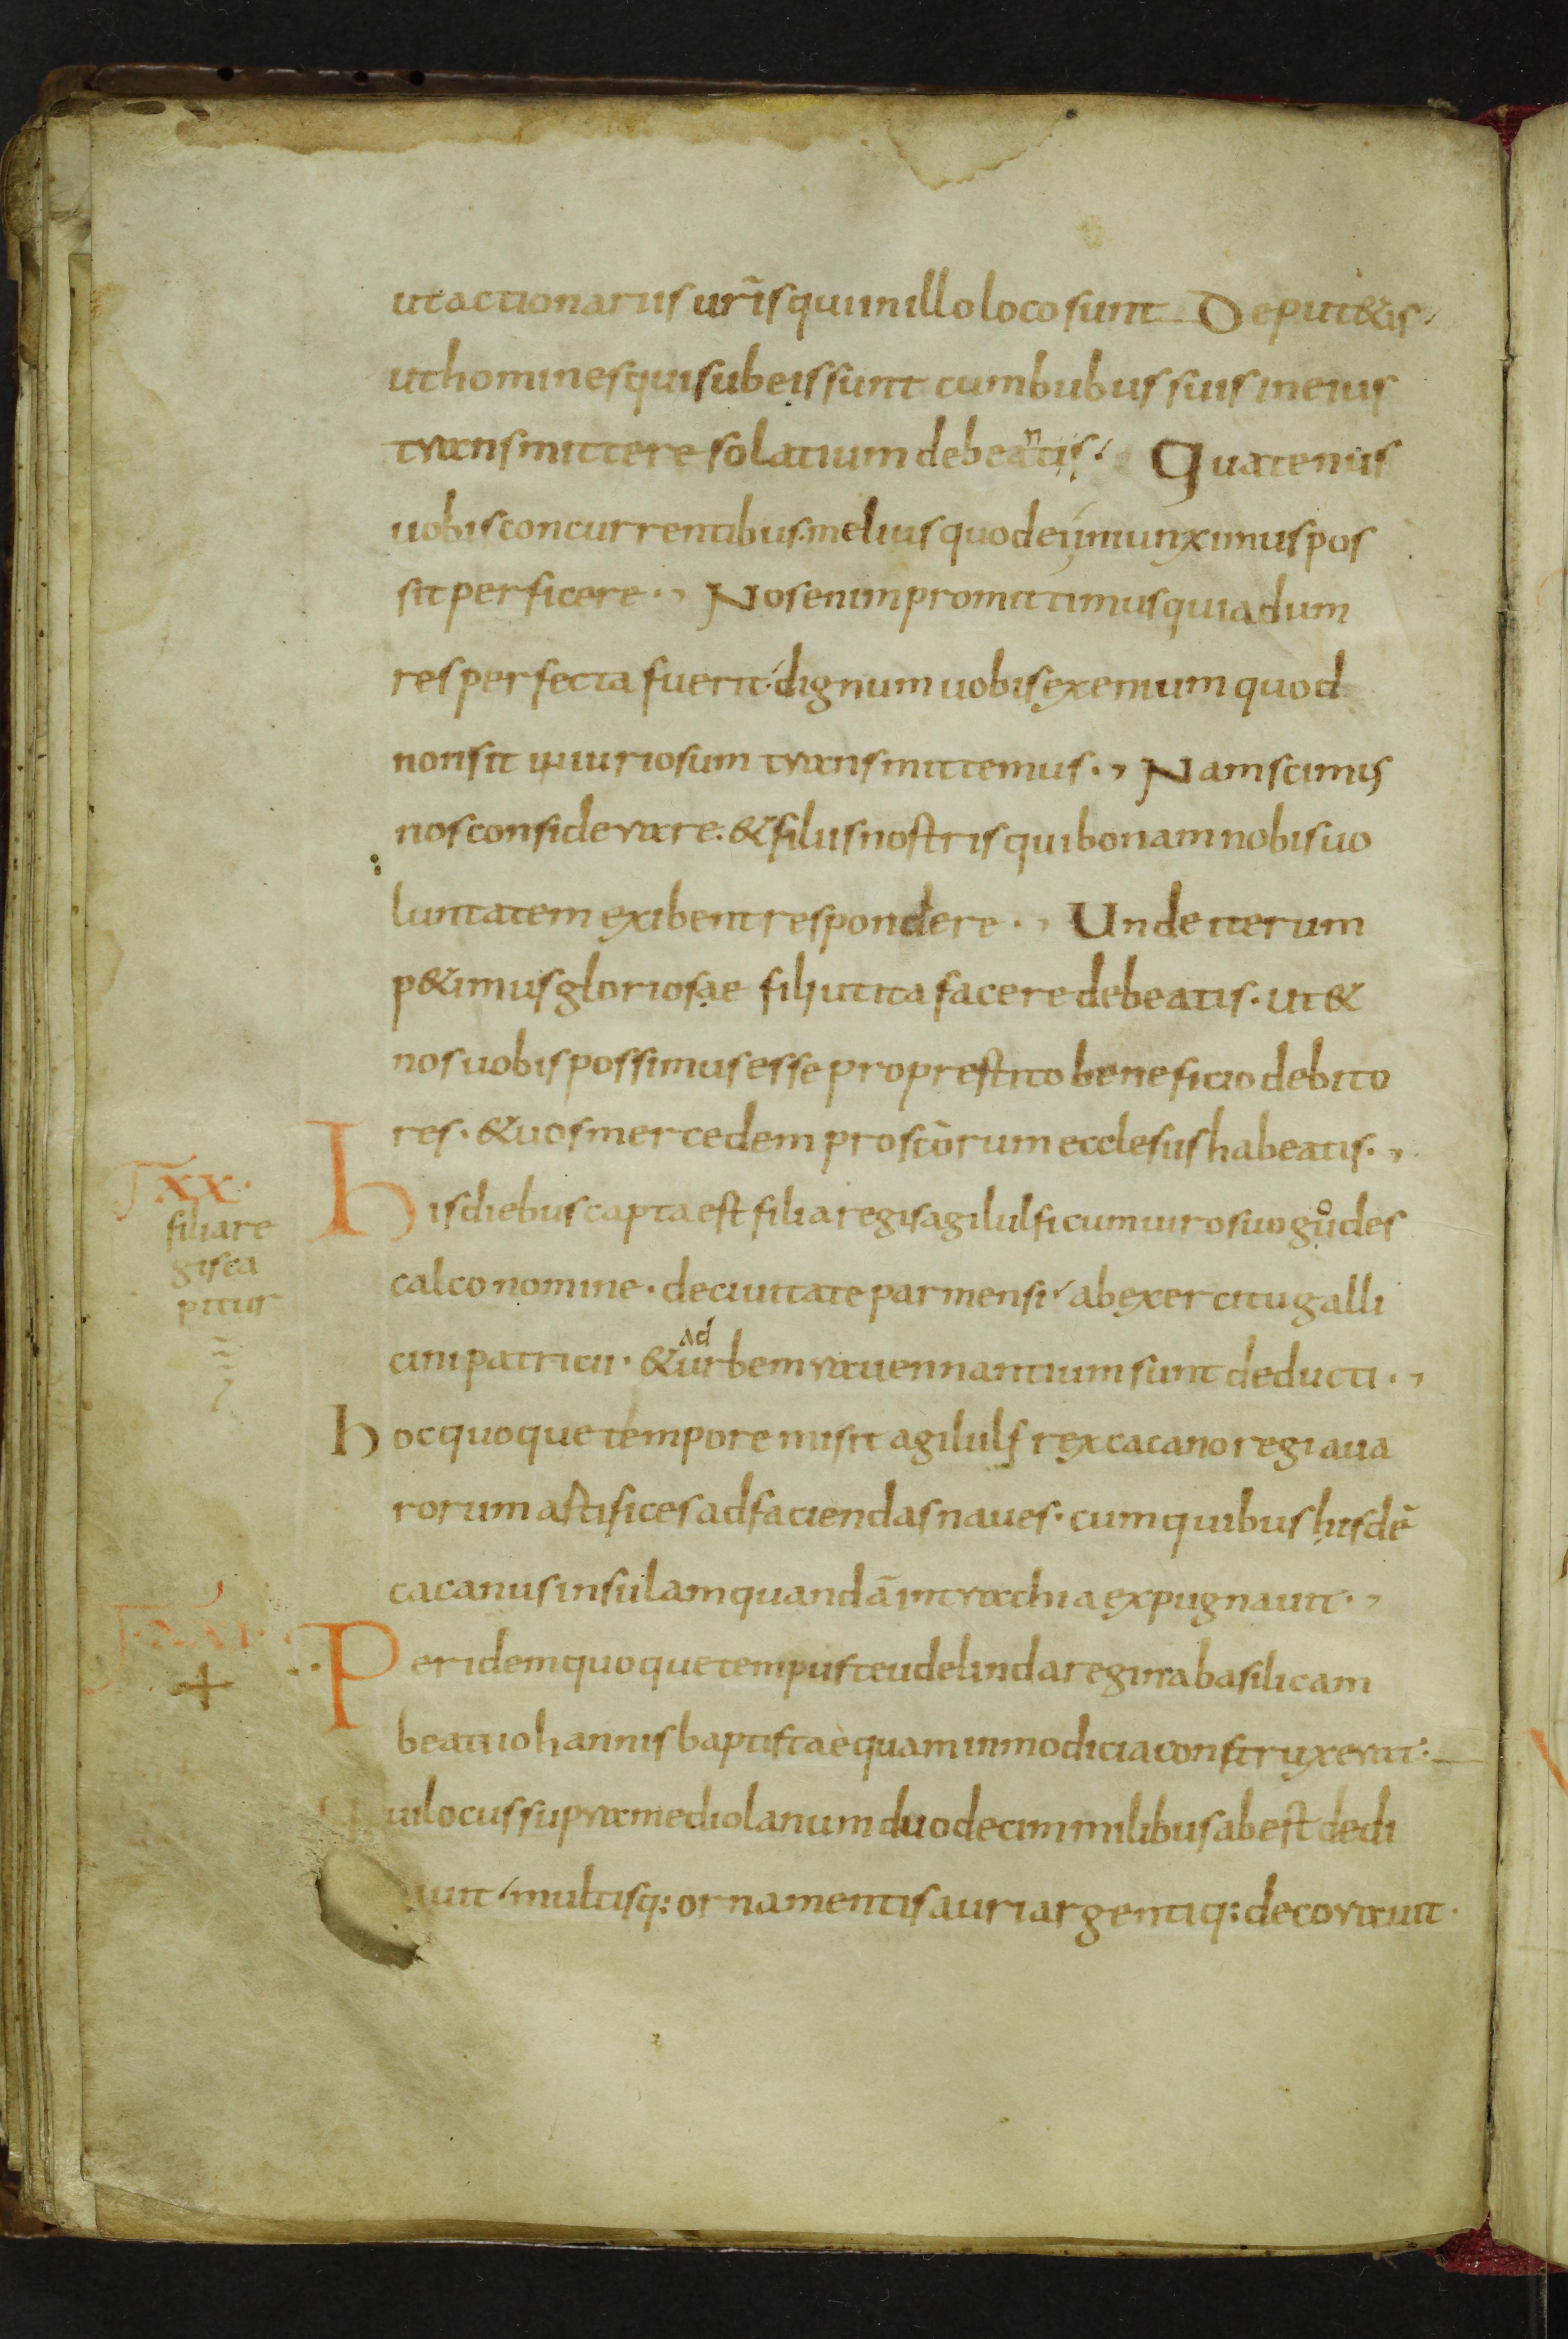 ut actionariis ur̃is qui in illo loco sunt Deput&is
ut homines qui sub eis sunt cum bubus suis in eius
transmittere solatium debeantis. Quatenus
uobis concurrentibus. melius quod ei iniunximus pos
sit perficere. Nos enim promittimus quia dum
res perfecta fuerit. dignum uobis exenium quod
non sit iniuriosum transmittemus. Nam scimus
nos considerare. & filiis nostris qui bonam nobis uo
luntatem exibent respondere. Unde iterum
p&imus gloriosae filii ut ita facere debeatis. ut &
nos uobis possimus esse pro prestito beneficio debito
res. & uos mercedem pro sc̃orum ecclesiis habeatis.
XX.
filia re
gis ca
pitur
His diebus capta est filia regis agilulfi cum uiro suo gůdes
calco nomine. de ciuitate parmensi. ab exercitu galli
cini patricii. & ad urbem rauennantium sunt deducti.
Hoc quoque tempore misit agilulf rex cacano regi aua
rorum astifices ad faciendas naues. cum quibus hisdẽ
cacanus insulam quandã in trachia expugnauit.
XXI.
Per idem quoque tempus teudelinda regina basilicam
beati iohannis baptistae quam in modicia construxerat.
Qui locus supra mediolanum duodecim milibus abest dedi
uit. multisq: ornamentis auri argentiq: decorauit.